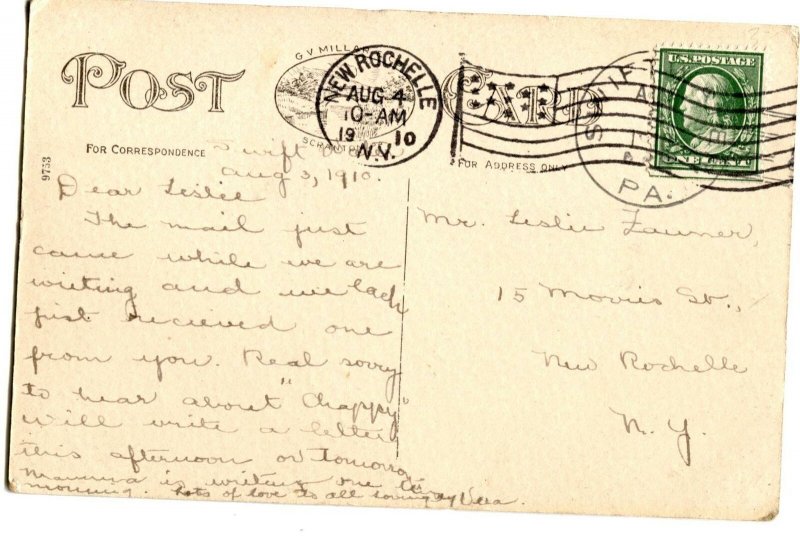 G V MILLAR
SCRANTON
POST CARD
NEW ROCHELLE
AUG 4
10-AM
19 10
N.Y.
SWIFT
PA.
U.S. POSTAGE
FOR CORRESPONDENCE
FOR ADDRESS ONLY
9753
Swift
Aug 3, 1910.
Dear Leslie
The mail just
came while we are
writing and we each
just recieved one
from you. Real sorry
to hear about "Chappy"
will write a letter
this afternoon or tomorrow
Mamma is writing one this
morning. Lots of love to all
Mr. Leslie
15 Morris St.,
New Rochelle
N. Y.